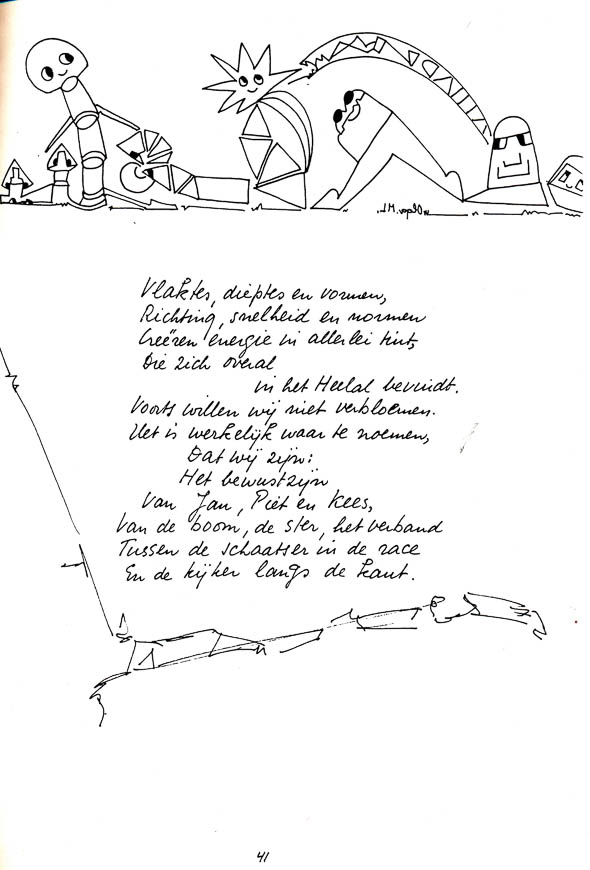 Vlaktes, dieptes en vormen,
Richting, snelheid en normen
Creëren energie in allerlei tint,
Die zich overal
in het Heelal bevindt.
Voorts willen wij niet verbloemen.
Het is werkelijk waar te noemen,
Dat wij zijn:
Het bewustzijn
Van Jan, Piet en Kees,
Van de boom, de ster, het verband
Tussen de schaatser in de race
En de kijker langs de kant.
41